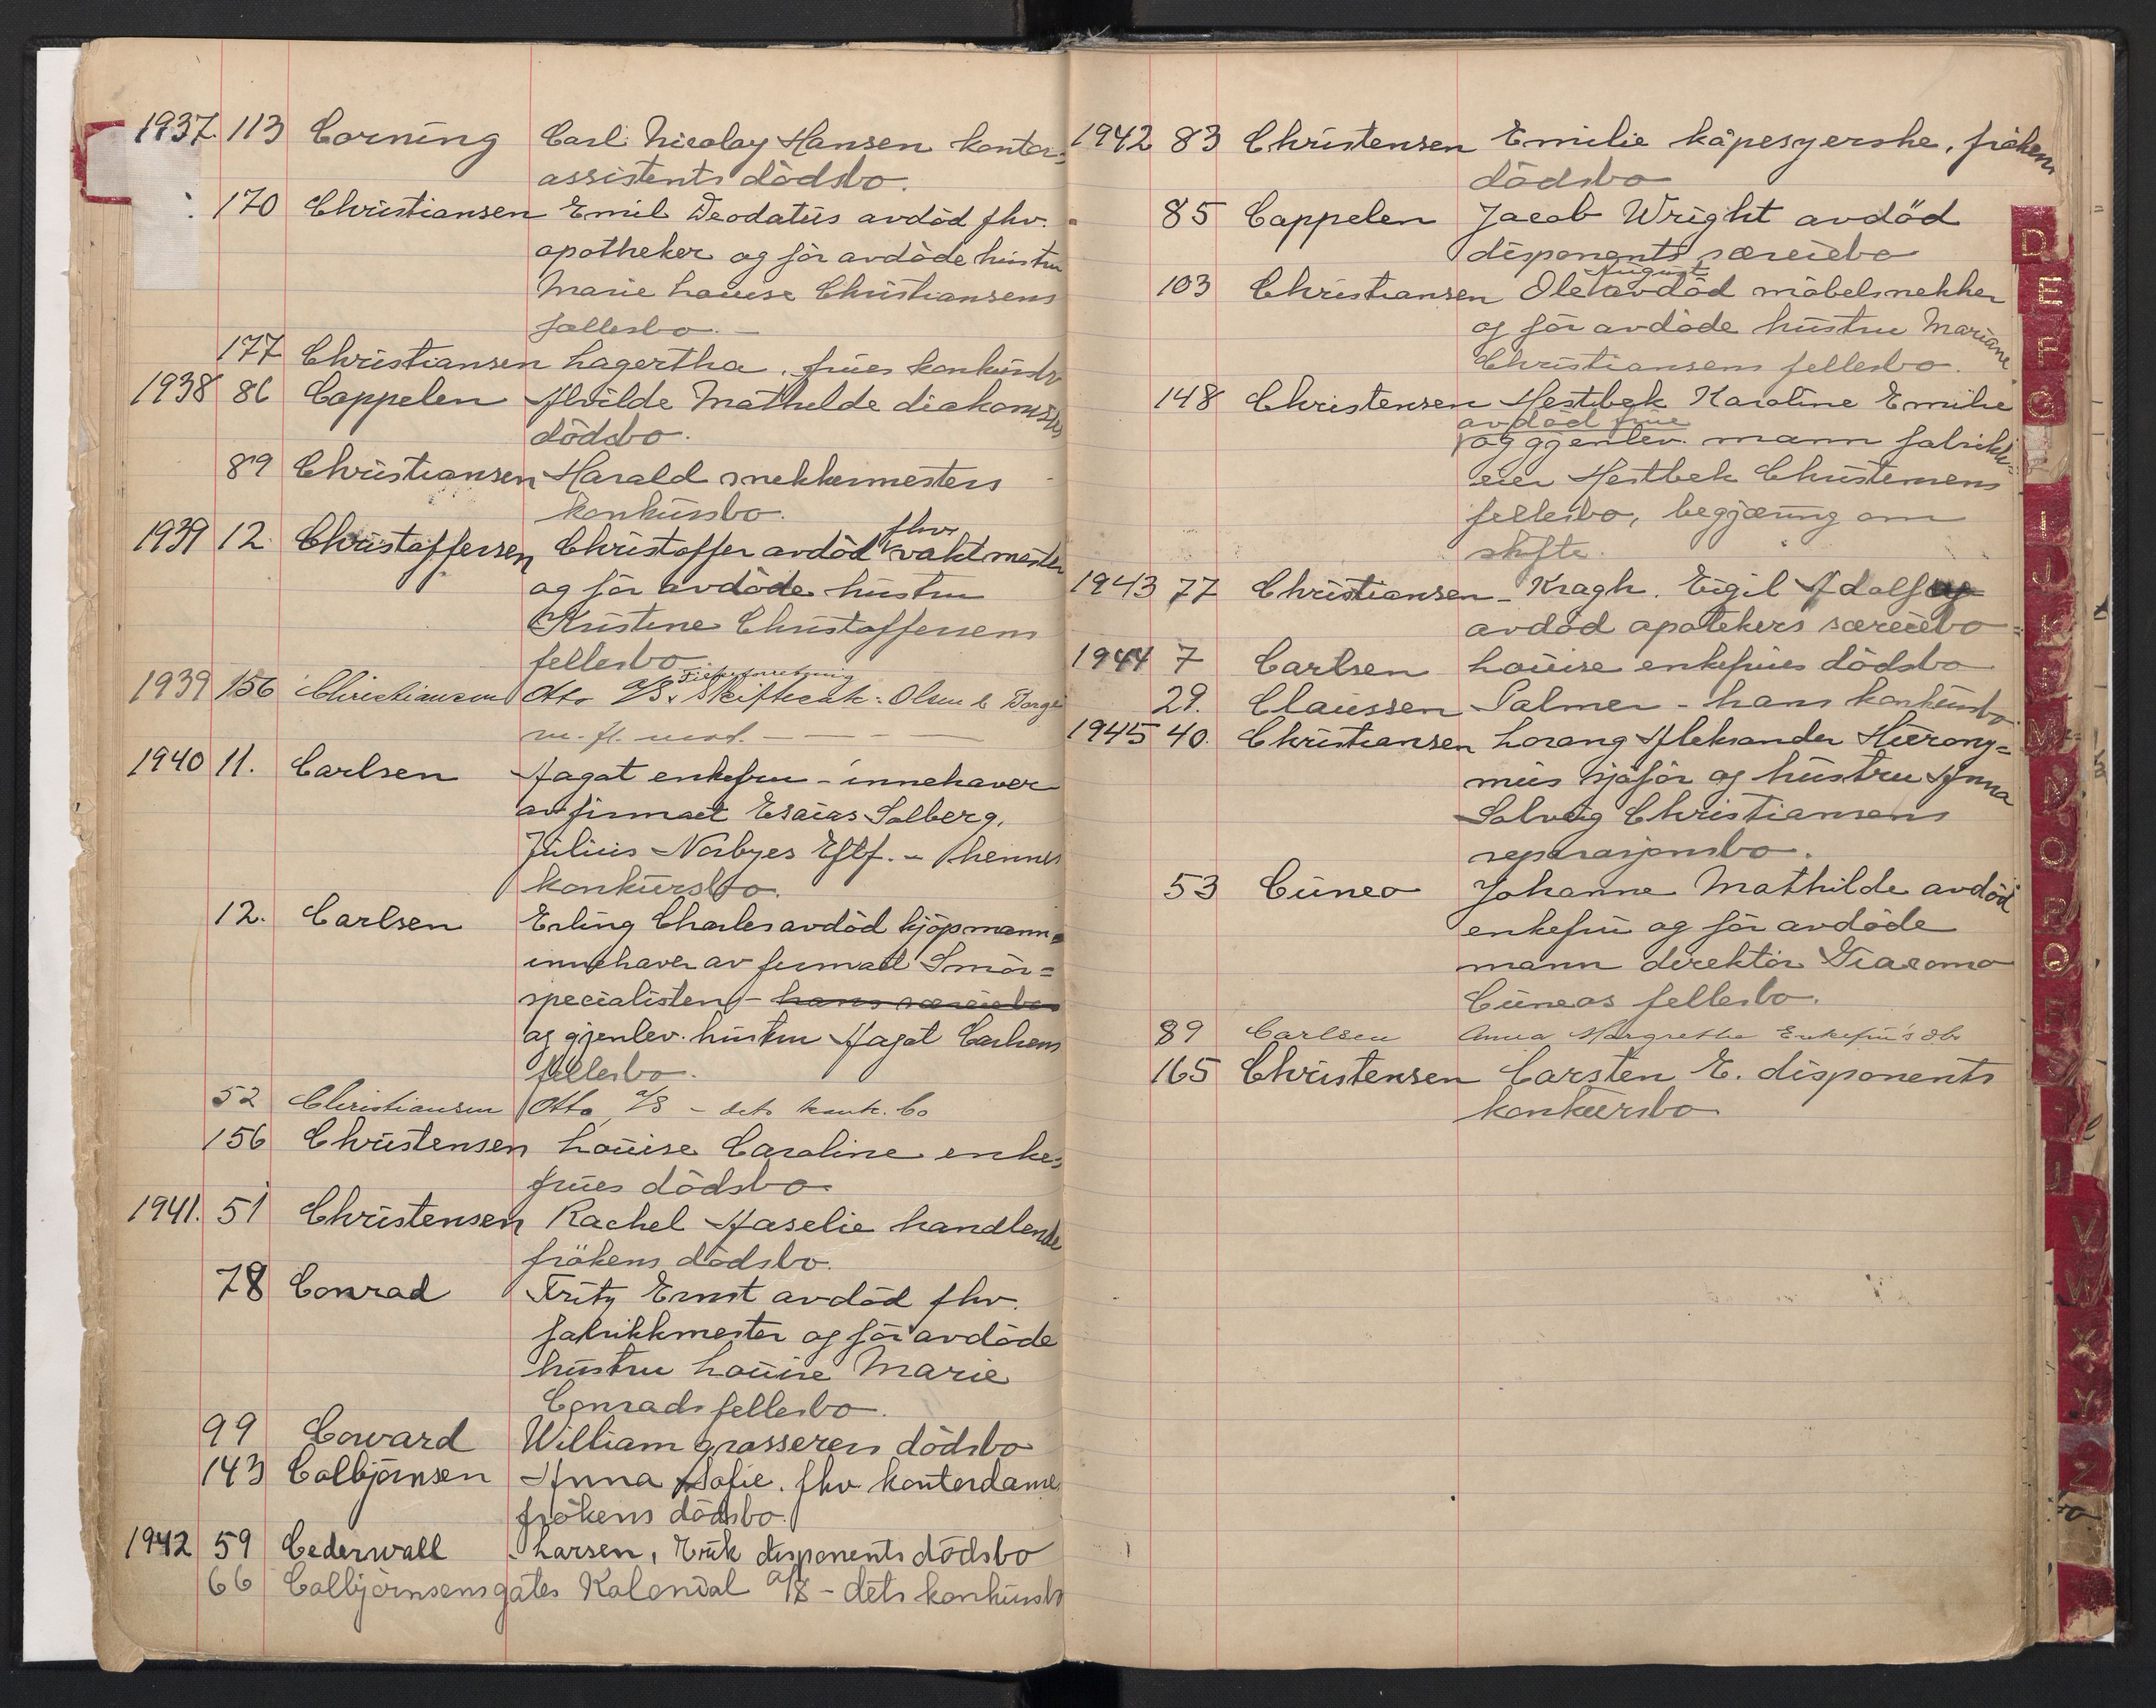 1937. 113 Corning Carl Nicolay Hansen kontor-
assistents dödsbo.
170 Christiansen Emil Deodatus avdöd fhv.
apotheker og för avdöde hustru
Marie Louise Christiansens
fællesbo. —
177 Christiansen Lagertha, frues konkursbo
1938 86 Cappelen Alvilde Mathilde diakonisses
dödsbo.
89 Christiansen Harald snekkermesters
konkursbo.
1939 12. Christoffersen Christoffer avdöd fhv. vaktmester
og för avdöde hustru
Kristine Christoffersens
fellesbo
1939 156 Christiansen Otto A/S. Fiskeforretning Skiftesak: Olsen
m. fl. mot. — — — —
1940 11. Carlsen Aagot enkefru - innehaver
av firmaet Esaias Solberg,
Julius Norbyes Eftf. - hennes
konkursbo.
12. Carlsen Erling Charles avdöd kjöpmann
innehaver av firmaet Smör=
specialisten - hans særeiebo
og gjenlev. hustru Aagot Carlsens
fellesbo.
52 Christiansen Otto, A/S - dets konk. bo
156 Christensen Louise Caroline enke=
frues dödsbo
1941. 51 Christensen Rachel Aaselie handlende
frökens dödsbo.
78 Conrad Fritz Ernst avdöd fhv.
fabrikkmester og för avdöde
hustru Louise Marie
Conrads fellesbo.
99 Coward William grosserers dödsbo
143 Colbjörnsen Anna Sofie. fhv. kontordame
frökens dödsbo.
1942 59 Cederwall - Larsen, Erik disponents dödsbo
66 Colbjörnsensgates Kolonial A/S - dets konkursbo
1942 83 Christensen Emilie kåpesyerske, frökens
dödsbo
85 Cappelen Jacob Wright avdöd
disponents særeiebo
103 Christiansen Ole August avdöd möbelsnekker
og för avdöde hustru Mariane
Christiansens fellesbo.
148 Christensen Hestbek Karoline Emilie
avdöd frue
og gjenlev. mann fabrikk=
eier Hestbek Christensens
fellesbo, begjæring om
skifte.
1943 77 Christiansen - Kragh. Eigil Adolf
avdöd apotekers særeiebo
1944 7 Carlsen Louise enkefrues dödsbo
29. Claussen Palmer - hans konkursbo.
1945 40. Christiansen Lorang Aleksander Hierony=
mus sjåför og hustru Anna
Solveig Christiansens
reparasjonsbo.
53 Cuneo Johanne Mathilde avdöd
enkefru og för avdöde
mann direktör Giacomo
Cuneos fellesbo.
89 Carlsen Anna Margrethe Enkefru's dbo
165 Christensen Carsten E. disponents
konkursbo
D
E
F
G
I
J
K
L
M
N
O
P
Q
R
S
T
U
V
W
X
Y
Z